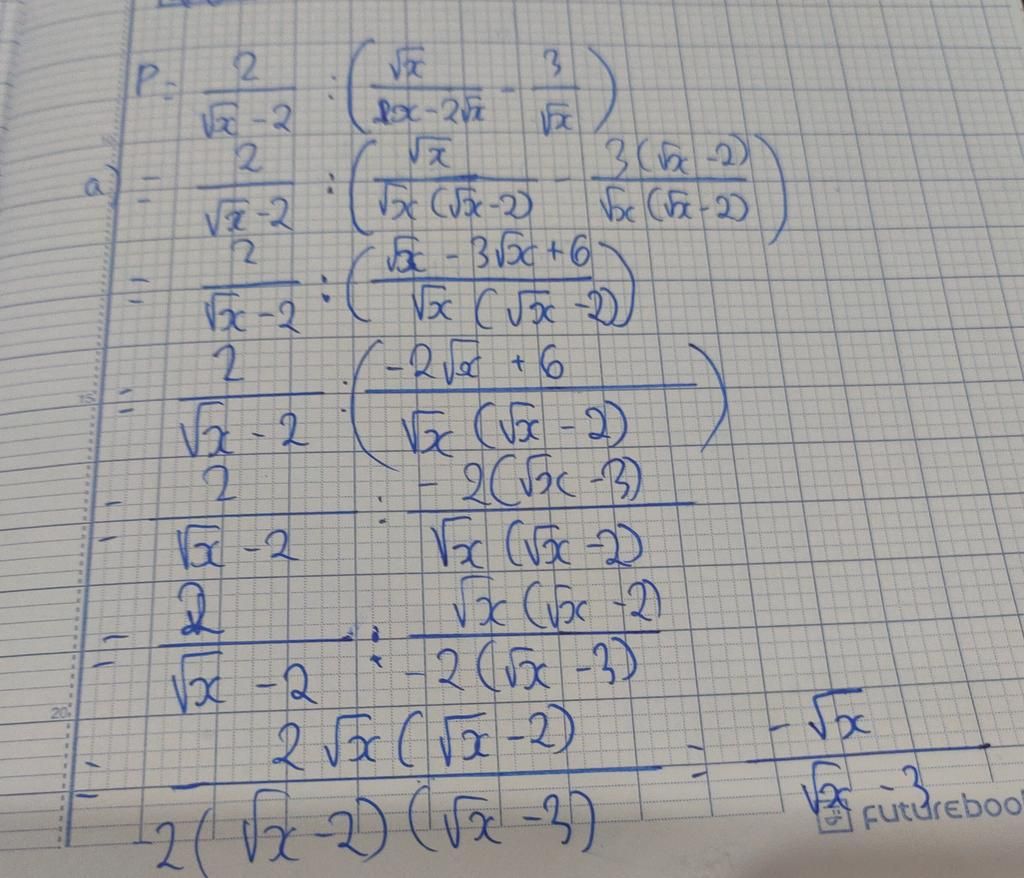 P = 2/(√x - 2) : (√x/(x - 2√x) - 3/√x)
a) = 2/(√x - 2) : (√x/(√x(√x - 2)) - 3(√x - 2)/(√x(√x - 2)))
= 2/(√x - 2) : ((√x - 3√x + 6)/(√x(√x - 2)))
= 2/(√x - 2) : ((-2√x + 6)/(√x(√x - 2)))
= 2/(√x - 2) : -2(√x - 3)/(√x(√x - 2))
= 2/(√x - 2) : √x(√x - 2)/(-2(√x - 3))
= 2√x(√x - 2)/(-2(√x - 2)(√x - 3)) = -√x/(√x - 3)
15
20
FUTUREBOO